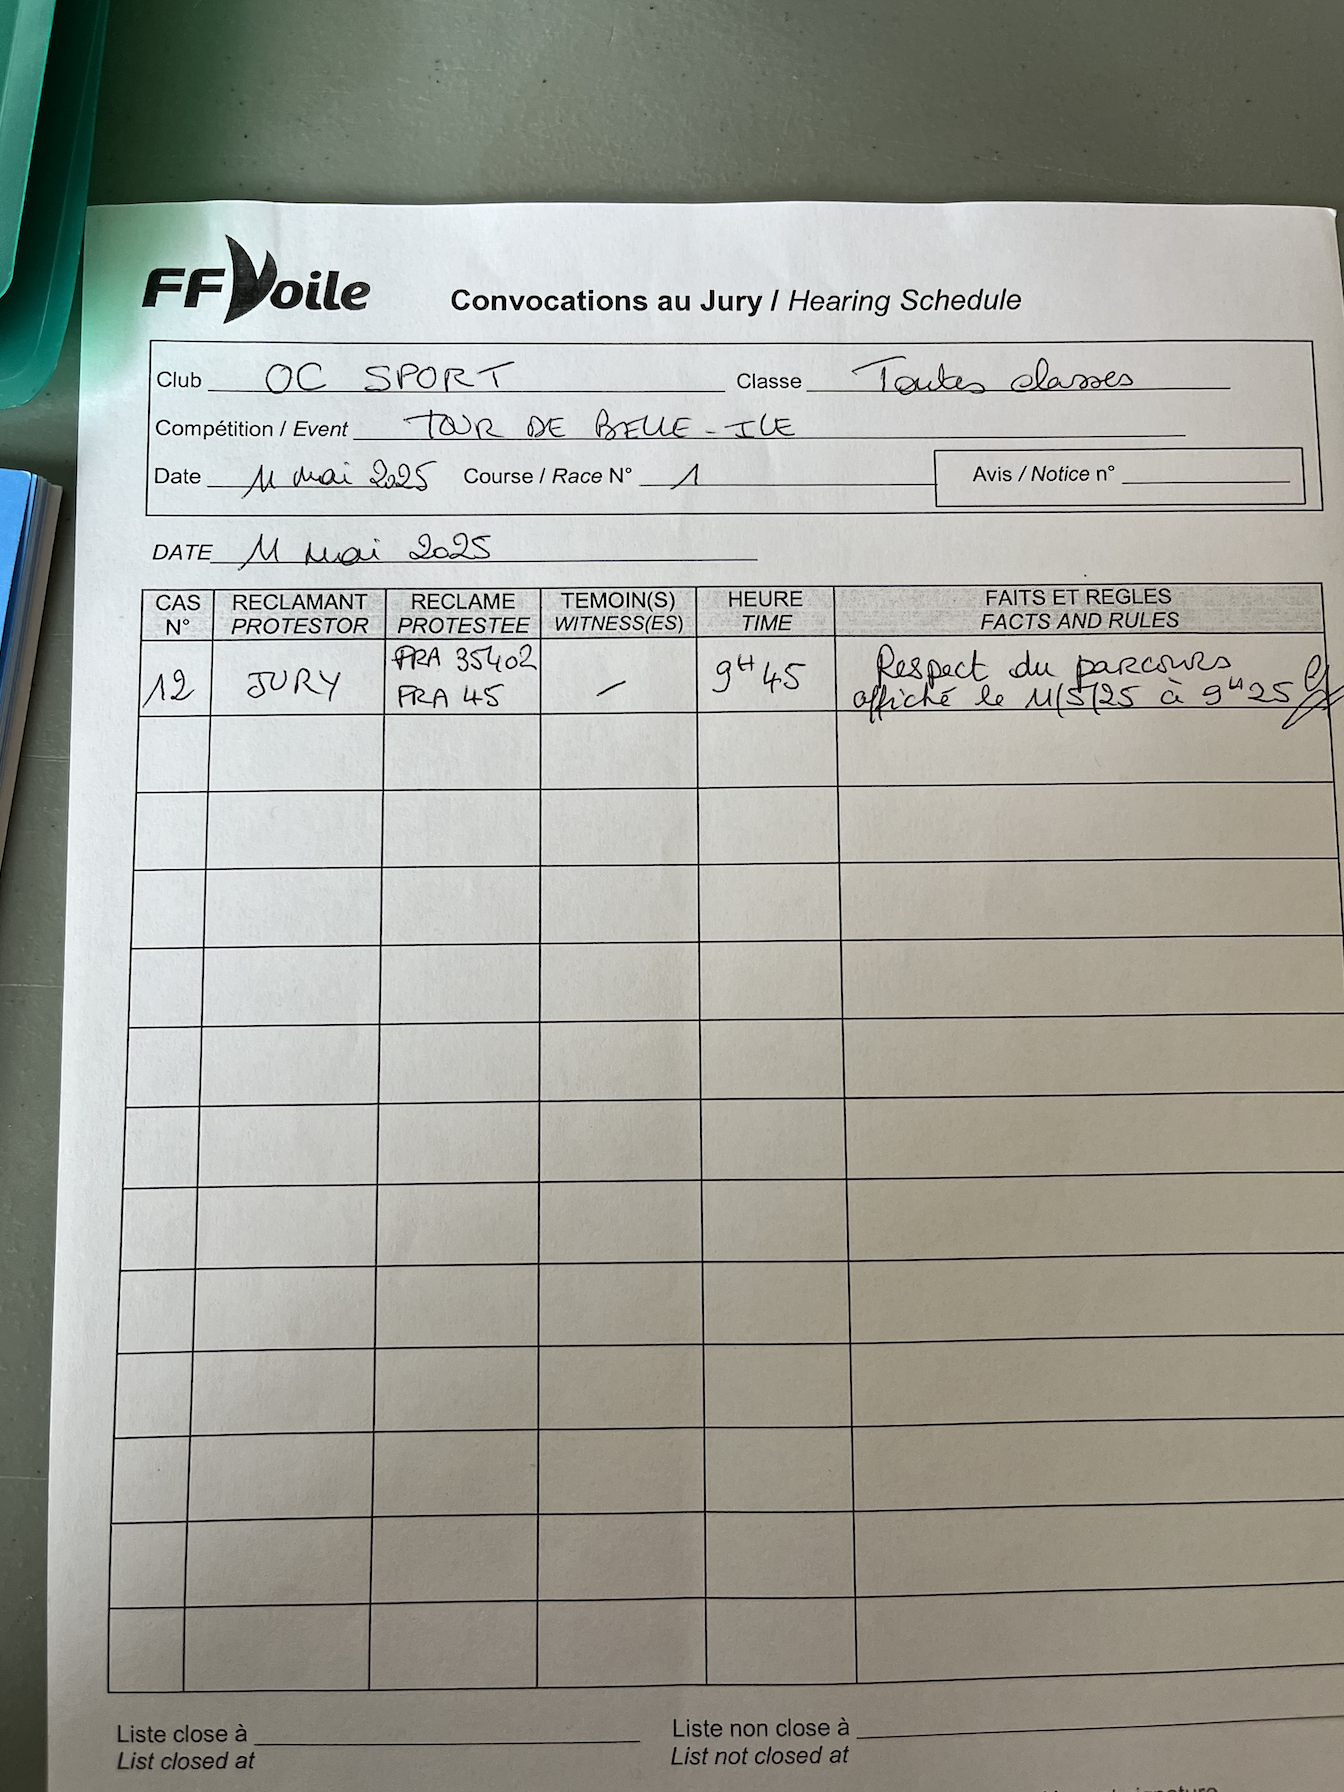 FFVoile
Convocations au Jury / Hearing Schedule
Club OC SPORT Classe Toutes classes
Compétition / Event TOUR DE BELLE-ILE
Date 11 mai 2025 Course / Race N° 1 Avis / Notice n°
DATE 11 mai 2025
CAS N° RECLAMANT PROTESTOR RECLAME PROTESTEE TEMOIN(S) WITNESS(ES) HEURE TIME FAITS ET REGLES FACTS AND RULES
12 JURY FRA 35402 FRA 45 - 9H45 Respect du parcours
affiché le 11/5/25 à 9H25
Liste close à Liste non close à
List closed at List not closed at